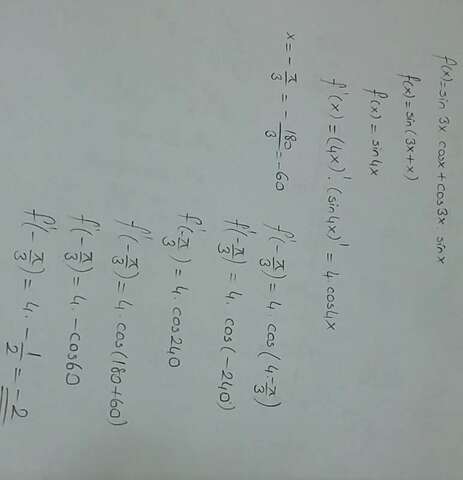 f(x)=sin 3x cosx+cos3x.sinx
f(x)=sin(3x+x)
f(x)=sin4x
f'(x)=(4x)'.(sin4x)'=4.cos4x
x=-π/3=-180/3=-60
f'(-π/3)=4.cos(4-π/3)
f'(-π/3)=4.cos(-240)
f'(-π/3)=4.cos240
f'(-π/3)=4.cos(180+60)
f'(-π/3)=4.-cos60
f'(-π/3)=4.-1/2=-2